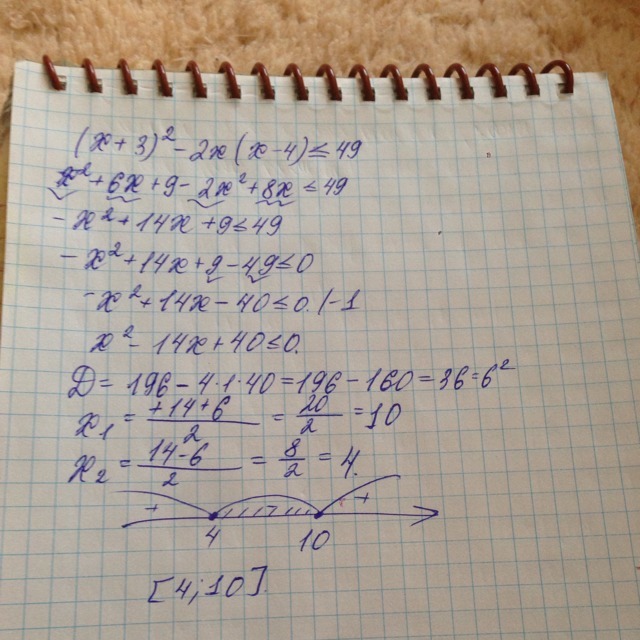 (x + 3)² - 2x (x - 4) ≤ 49
x² + 6x + 9 - 2x² + 8x ≤ 49
- x² + 14x + 9 ≤ 49
- x² + 14x + 9 - 49 ≤ 0
- x² + 14x - 40 ≤ 0. /-1
x² - 14x + 40 ≤ 0.
D = 196 - 4·1·40 = 196 - 160 = 36 = 6²
x₁ = (+14+6)/2 = 20/2 = 10
x₂ = (14-6)/2 = 8/2 = 4.
+ - +
4 10
[4; 10]